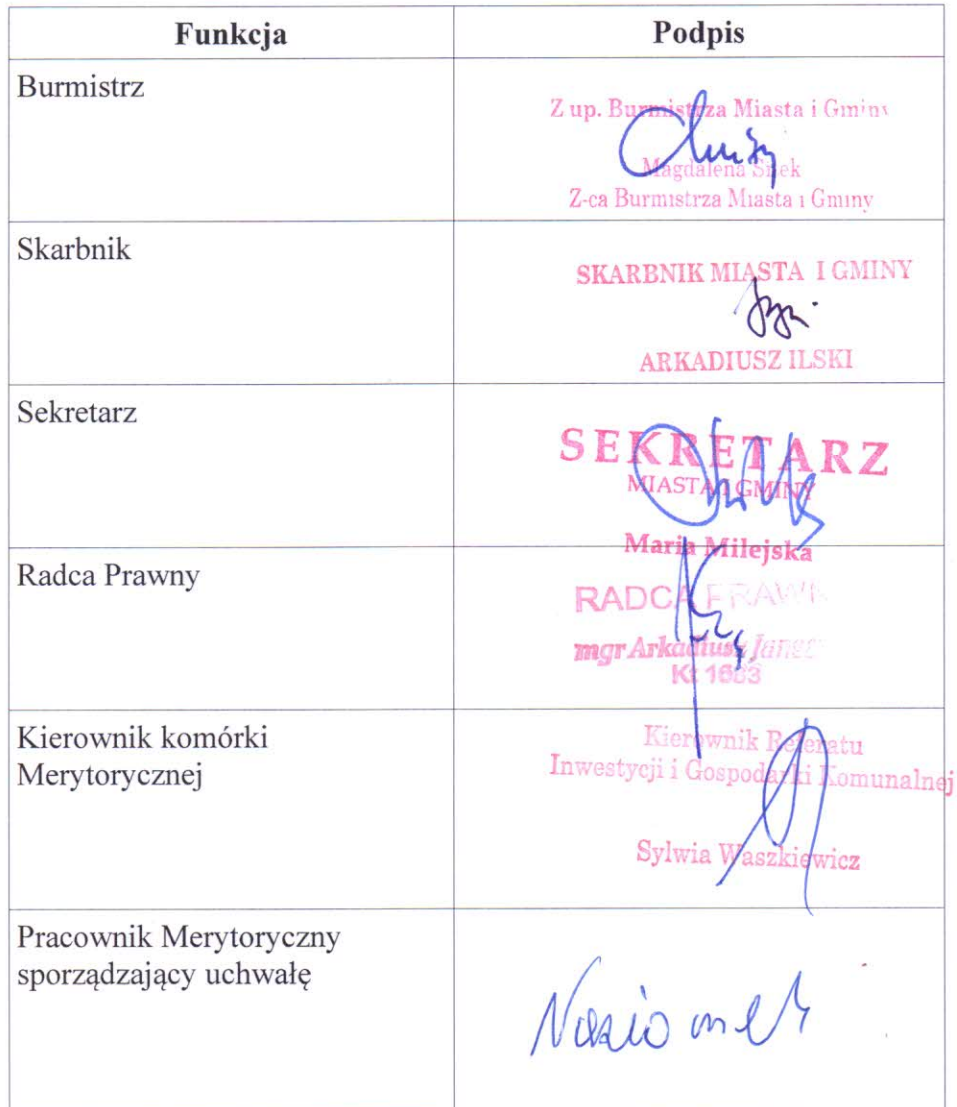 Funkcja Podpis
Burmistrz
Z up. Burmistrza Miasta i Gminy
Magdalena
Z-ca Burmistrza Miasta i Gminy
Skarbnik
SKARBNIK MIASTA I GMINY
ARKADIUSZ ILSKI
Sekretarz
SEKRETARZ
MIASTA I GMINY
Maria Milejska
Radca Prawny
RADCA
mgr Arkadiusz
Kierownik komórki
Merytorycznej
Kierownik Referatu
Inwestycji i Gospodarki Komunalnej
Sylwia Waszkiewicz
Pracownik Merytoryczny
sporządzający uchwałę